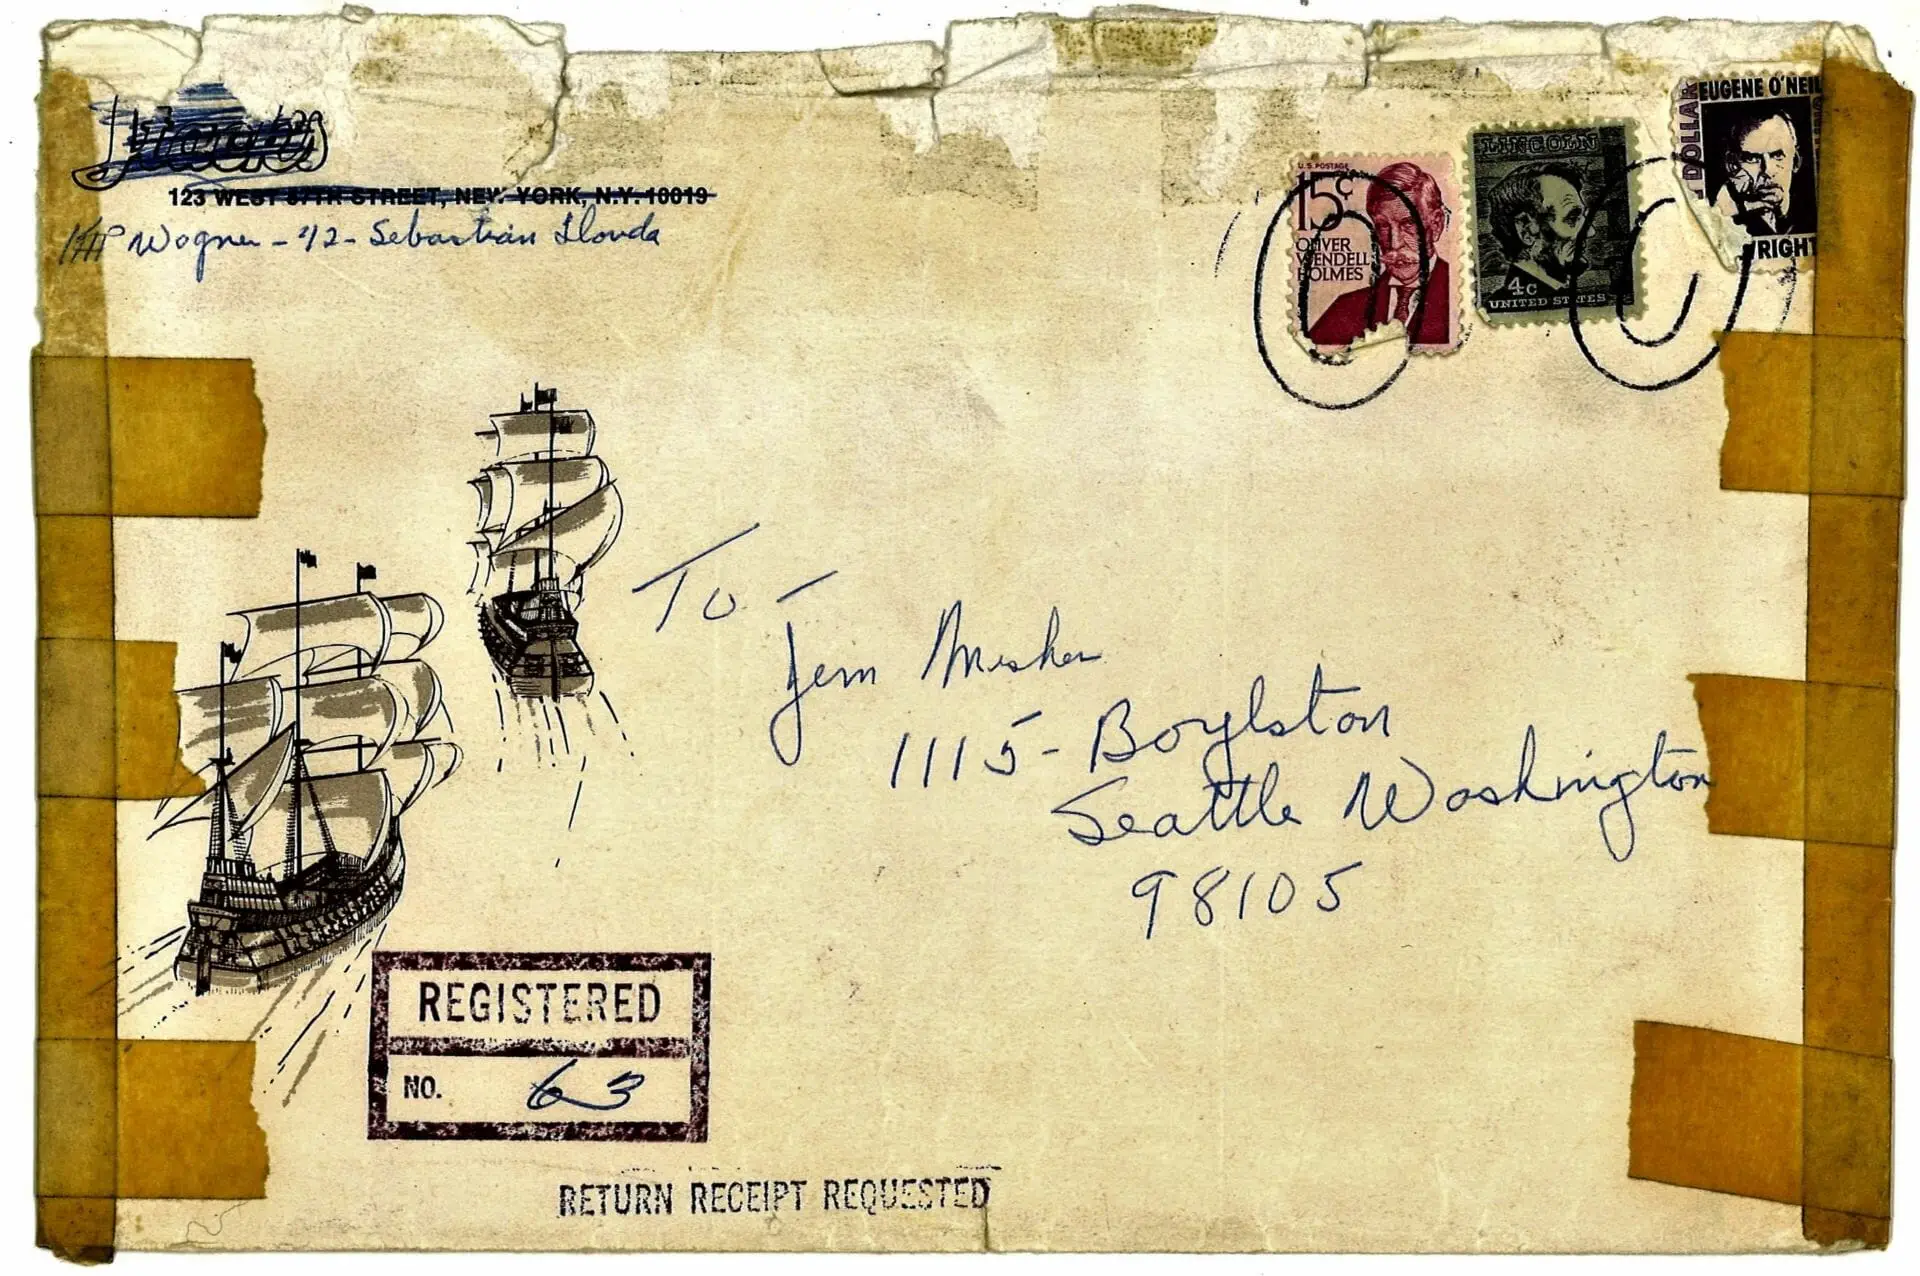 123 WEST 57TH STREET, NEW YORK, N.Y. 10019
Wagner - 42 - Sebastian Florida
U.S. POSTAGE
15¢
OLIVER
WENDELL
HOLMES
LINCOLN
4c
UNITED STATES
DOLLAR
EUGENE O'NEIL
WRIGHT
To -
Jem
1115 - Boylston
Seattle Washington
98105
REGISTERED
NO. 63
RETURN RECEIPT REQUESTED